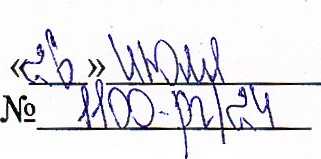 «26» июля
№ 1100-рг/24